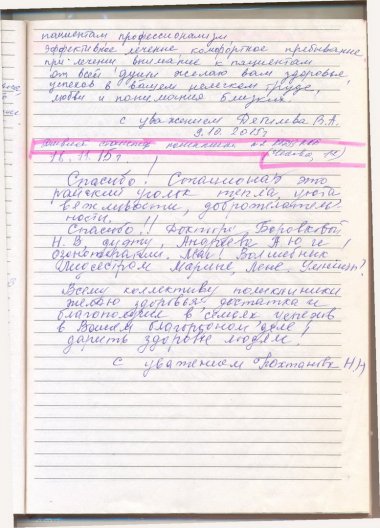 пациентам профессионализм
эффективное лечение комфортное пребывание
при лечении внимание к пациентам
от всей души желаю вам здоровья
успехов в вашем нелегком труде,
любви и понимания близких.
с уважением В.А.
9.10.2015г
18.11.15г.
Спасибо! Стационар это
райский уголок тепла уюта
вежливости, доброжелатель-
ности,
Спасибо!! Доктору Боровковой
Н.В,
Волшебным
Марине, Лене
Всему коллективу поликлиники
желаю здоровья достатка и
благополучия в семьях успехов
в Вашем благородном деле!
дарить здоровье людям!
с уважением Н.Н